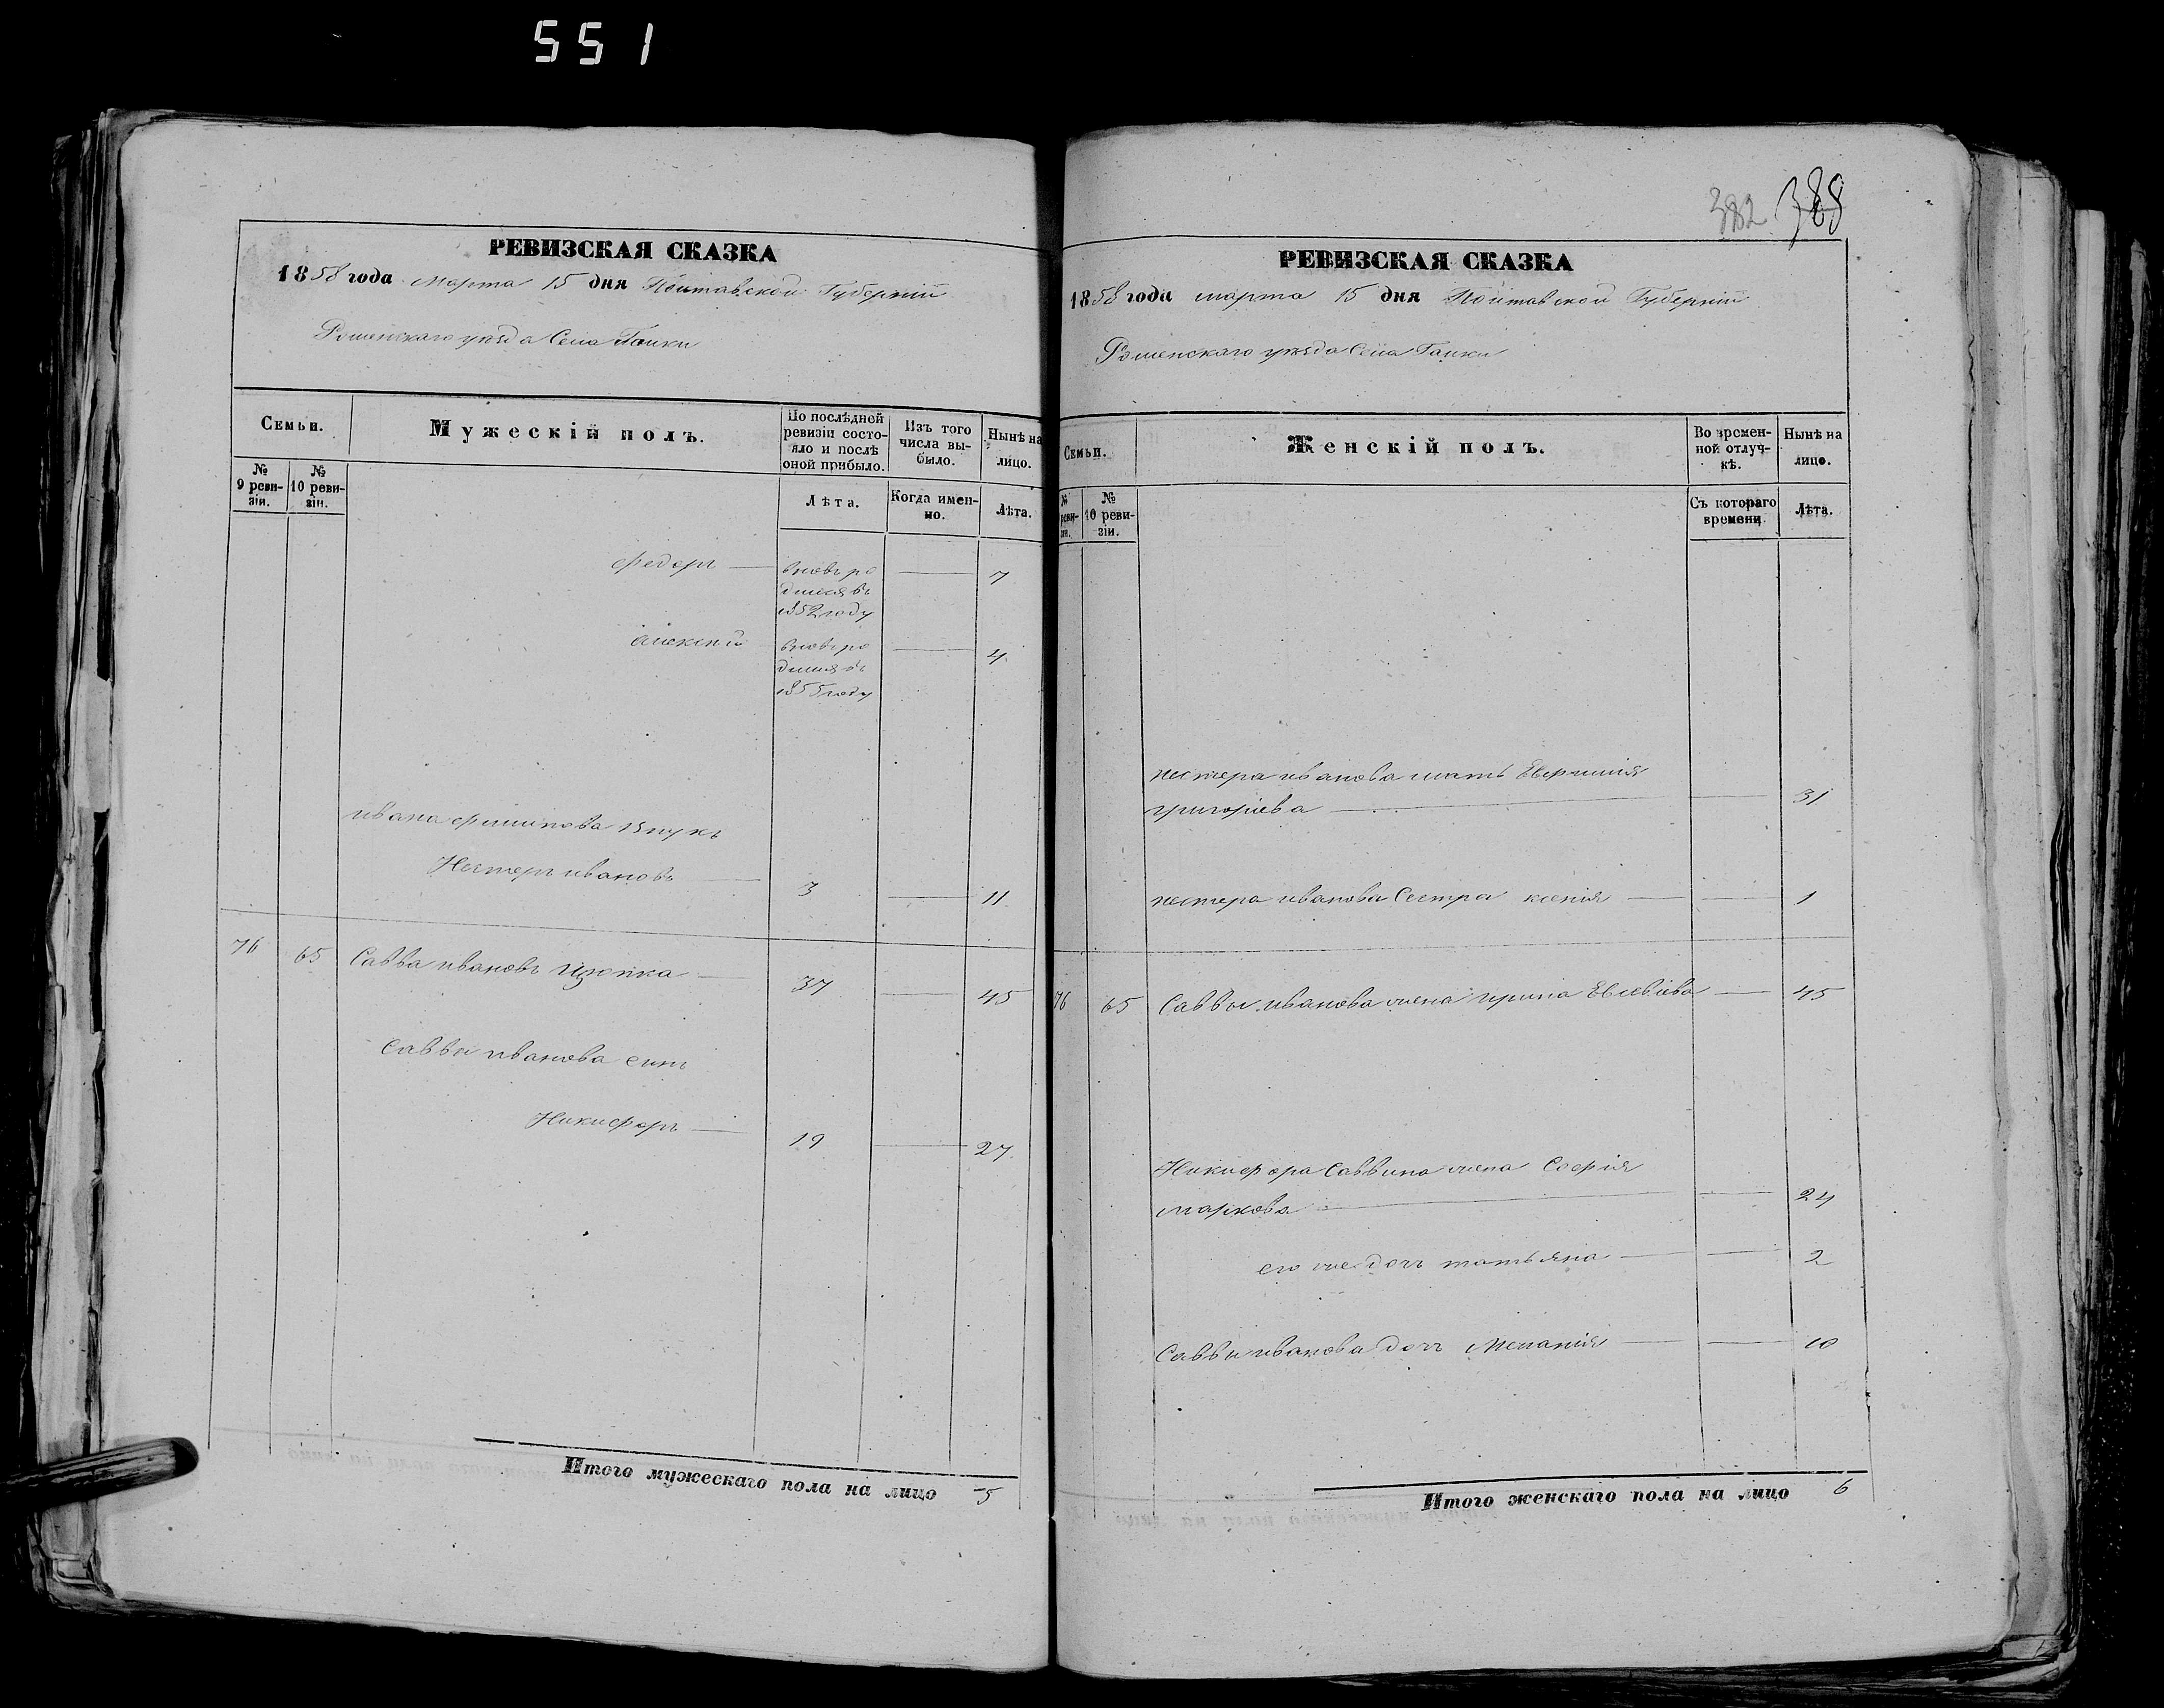 551
382 388
РЕВИЗСКАЯ СКАЗКА
1858 года марта 15 дня Полтавской Губерніи
Роменскаго уѣзда Села Галки
Семьи.
Мужескій полъ.
По послѣдней ревизіи состояло и послѣ оной прибыло.
Изъ того числа выбыло.
Нынѣ на лицо.
№ 9 ревизіи.
№ 10 ревизіи.
Лѣта.
Когда именно.
Лѣта.
Федоръ — вновь ро — 7
дился въ
1852 году
Алексѣй вновь ро — 4
дился въ
1855 году
Ивана Филипова внукъ
Нестеръ Ивановъ — 3 — 11
76 65 Савва Ивановъ — 37 — 45
Саввы Иванова сынъ
Никифоръ — 19 — 27
Итого мужескаго пола на лицо 5
РЕВИЗСКАЯ СКАЗКА
1858 года марта 15 дня Полтавской Губерніи
Роменскаго уѣзда Села Галки
Семьи.
Женскій полъ.
Во временной отлучкѣ.
Нынѣ на лицо.
№ ревизіи.
№ 10 ревизіи.
Съ котораго времени.
Лѣта.
Нестера Иванова мать Евфимія
Григоріева — — 31
Нестера Иванова Сестра Ксенія — — 1
76 65 Саввы Иванова жена Ирина Евсевіева — 45
Никифора Саввина жена Софія
Маркова — — 24
его же дочь Татьяна — — 2
Саввы Иванова дочь Меланія — — 10
Итого женскаго пола на лицо 6